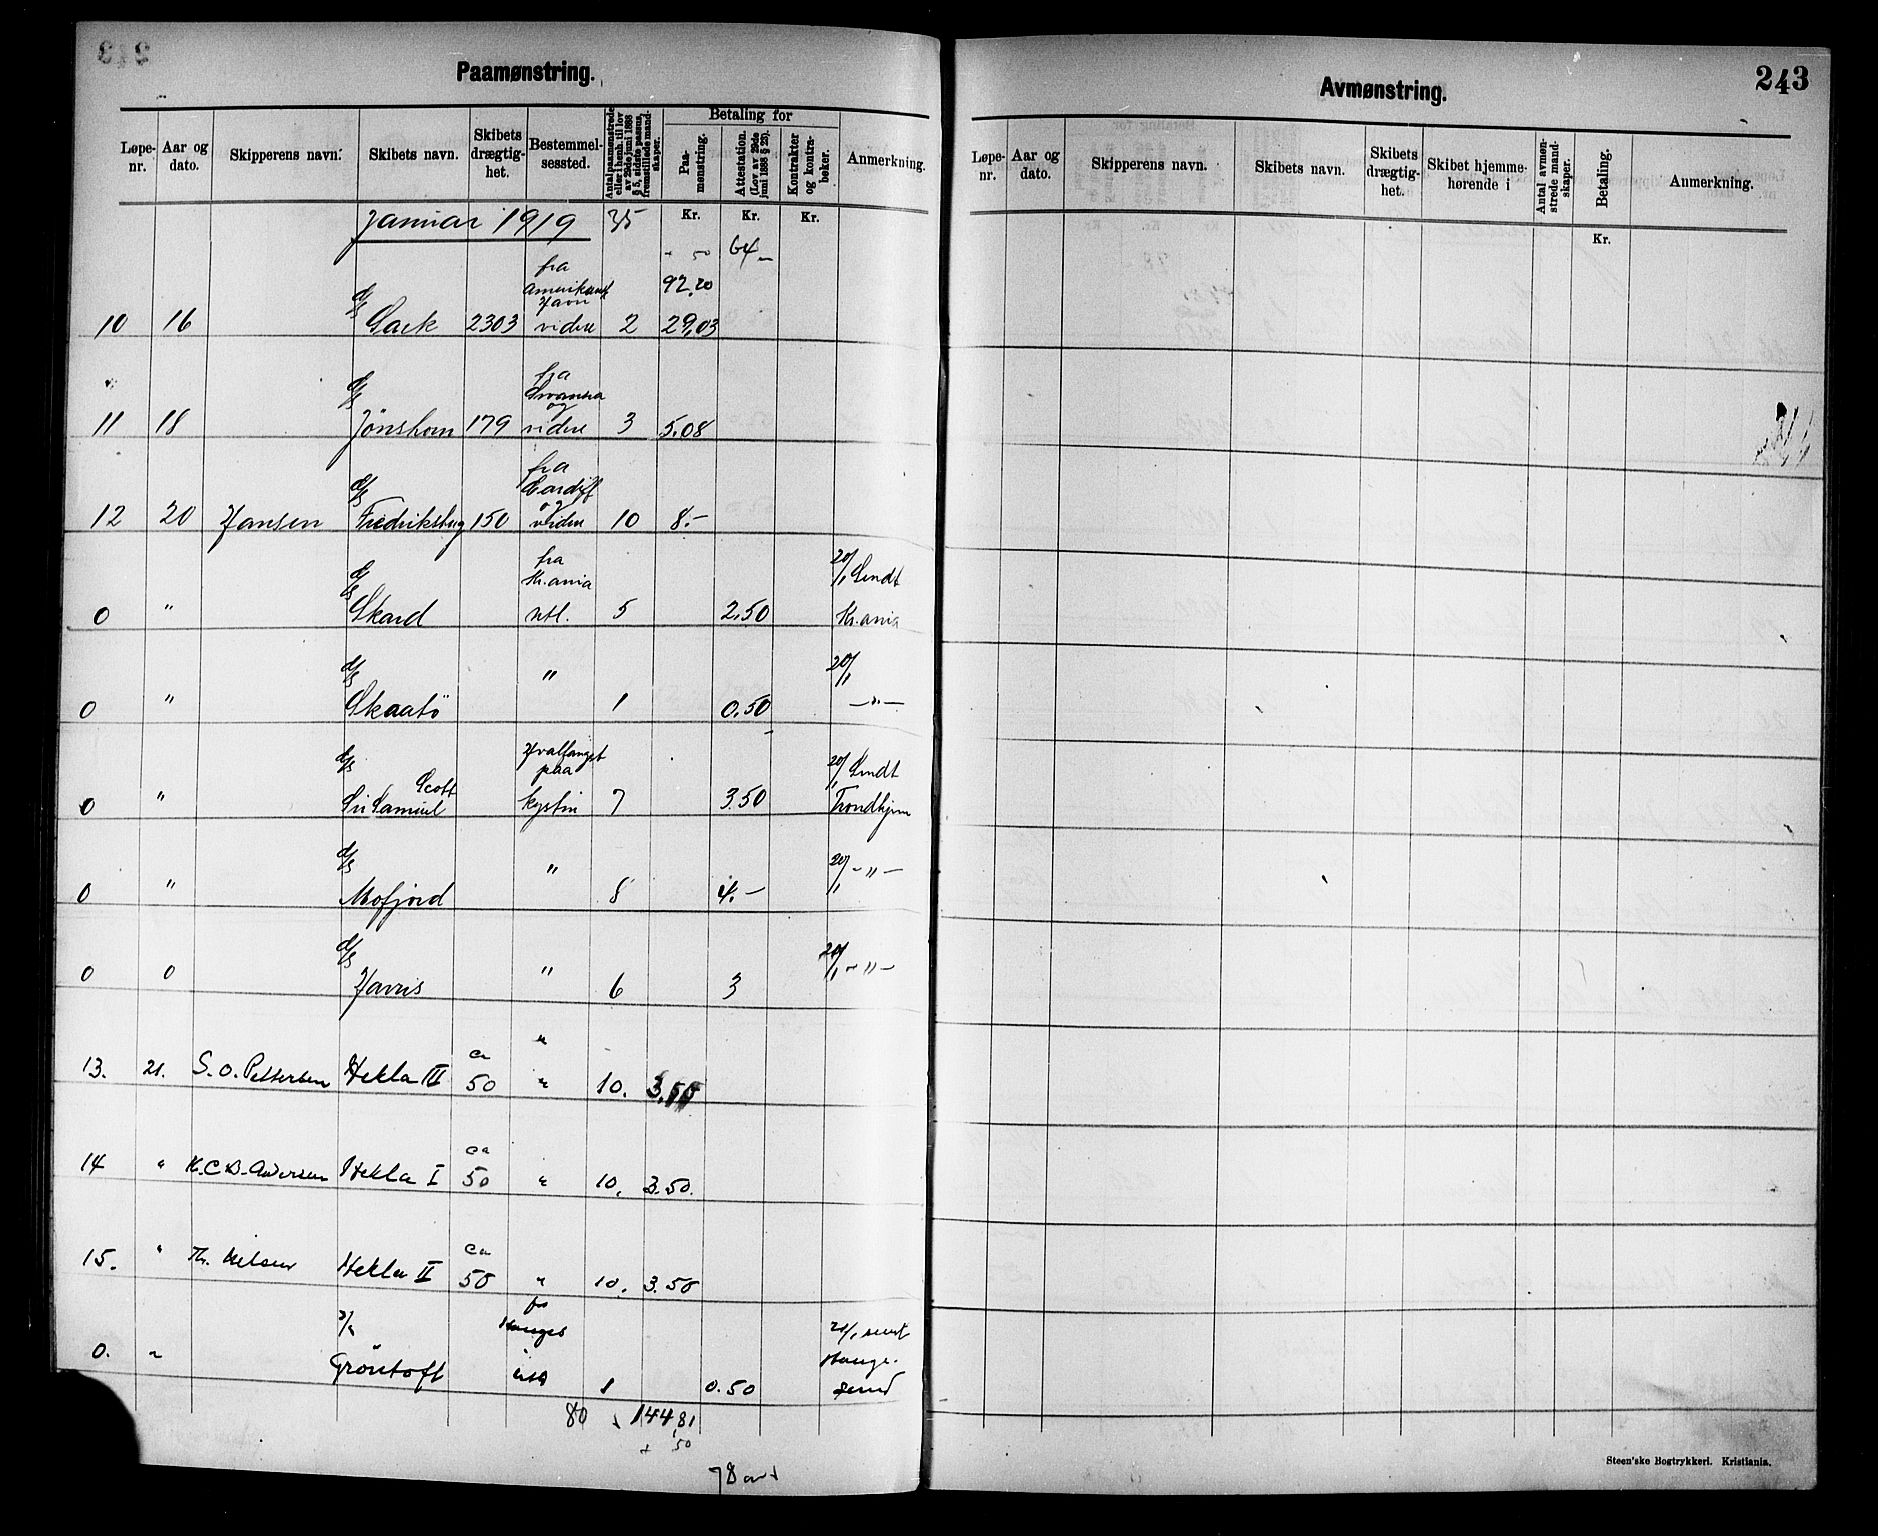 Paamønstring.
Løpe-nr. Aar og dato. Skipperens navn. Skibets navn. Skibets drægtig-het. Bestemmel-sessted. Antal paamønstrede eller i henh. til lov av 29de juni 1888 § 5, sidste passus, fremstillede mand-skaper. Betaling for Paa-mønstring. Attestation. (Lov av 29de juni 1888 § 23). Kontrakter og kontra-bøker. Anmerkning.
Kr. Kr. Kr.
Januar 1919 35
64 -
+ 50
92,20
fra
10 16 d/s Sark 2303 videre 2 29,03
fra Swansea og
11 18 d/s Jönshorn 179 videre 3 5.08
fra Cardiff og
12 20 Hansen d/s Fredriksborg 150 videre 10 8.-
fra Kr.ania 20/1 Sendt
0 " d/s Skard utl. 5 2,50 Kr.ania
0 " d/s Skaatö " 1 0.50 20/1 -"-
Hvalfangst paa 20/1 Sendt
0 " d/s Sir Samuel Scott kysten 7 3.50 Trondhjem
0 " d/s Mofjord " 8 4.- 20/1 -"-
0 0 d/s " 6 3 20/1 -"-
13. 21. S. O. Pettersen Hekla III ca 50 " 10. 3,50
14 " K.C.B. Andersen Hekla I ca 50 " 10. 3.50.
15. " Th. Nilsen Hekla II ca 50 " 10. 3.50
fra 21/1 sendt
0. " Gröntoft 1 0.50
80 144,81
+ 50
Avmønstring.
243
Løpe-nr. Aar og dato. Skipperens navn. Skibets navn. Skibets drægtig-het. Skibet hjemme-hørende i Antal avmøn-strede mand-skaper. Betaling. Anmerkning.
Kr.
Steen'ske Bogtrykkeri. Kristiania.